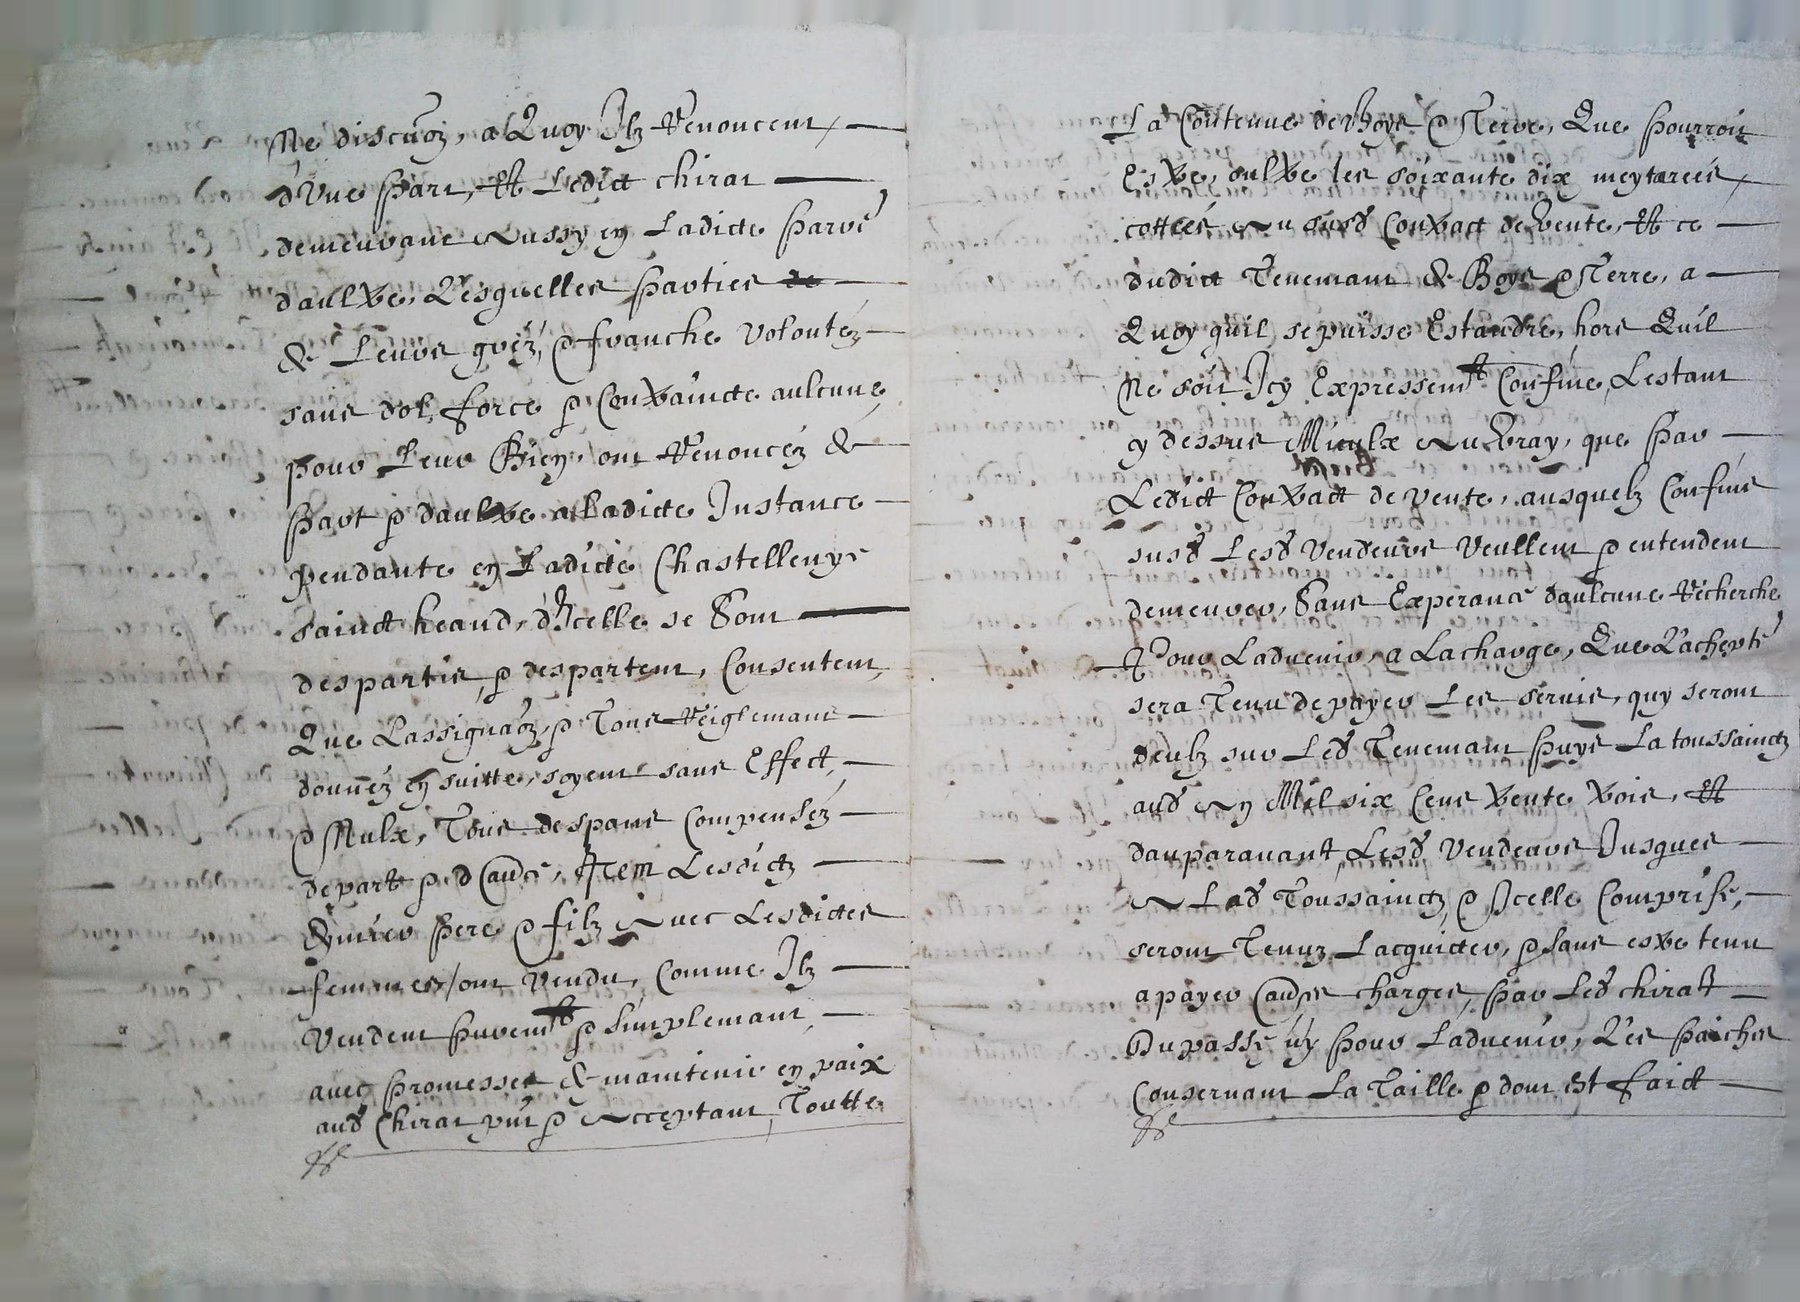 Ne discuõn, a Quoy Ilz Renoncent, —
d'Une part, Et Ledict chirat —
demeurant Aussy en Ladicte parre
daultre, Lesquelles parties de —
de Leurs grez, & franche volontéz —
sans dol, force & Contraincte aulcune,
pour Leur Bien, ont Renoncéz de —
part & daultre a Ladicte Instance —
pendante en Ladicte Chastellenye
sainct heand, d'Icelle se Sont —
despartis, & despartent, Consentent,
Que Lassignaõn, & Tous Reiglemant —
donnéz en suitte, soyent sans Effect, —
& Nulz, Tous despans Compenséz —
de part & d'aũe, Item Lesdictz —
père & filz Avec Lesdictes
femmes / ont vendu, Comme Ilz —
Vendent purem.t & simplemant, —
avec promesses de maintenir en paix
aud Chirat pñt & Acceptant, Toutte
La Contenue de Boys & Terre, Que pourroit
Estre, oultre les soixante dix meytarees,
cottées Au susd Contract de Vente, Et ce —
dudict Tenemant de Boys & Terre, a —
Quoy quil se puisse Estandre, hors Quil
Ne soit Icy Expressem.t Confiné, Lestant
y dessus Mieulx Au Vray, que par —
Ledict Contract de vente, ausquelz Confins
susd Lesd Vendeurs Veullent & entendent
demeurer, Sans Esperance daulcune Recherche
Pour Ladvenir, a La charge, Que Lachepter
sera Tenu de payer Les servis, quy seront
deubz sur Led Tenemant puys La toussainctz
aud An Mil six Cens trente trois, Et
dauparavant, Lesd Vendeurs Jusques —
A Lad Toussainctz, & Icelle Comprise, —
seront Tenuz Lacquitter, & sans estre tenu
a payer aũes charges, par Led chirat —
Du passé, ny pour Ladvenir, Les paiches
Conservant La Taille & dont Est faict —